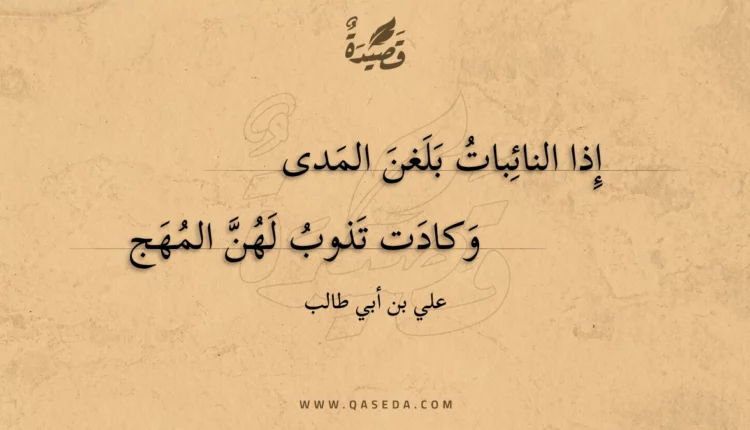 قَصِيدَةٌ
إِذا النائِباتُ بَلَغنَ المَدى
وَكادَت تَذوبُ لَهُنَّ المُهَج
علي بن أبي طالب
WWW.QASEDA.COM